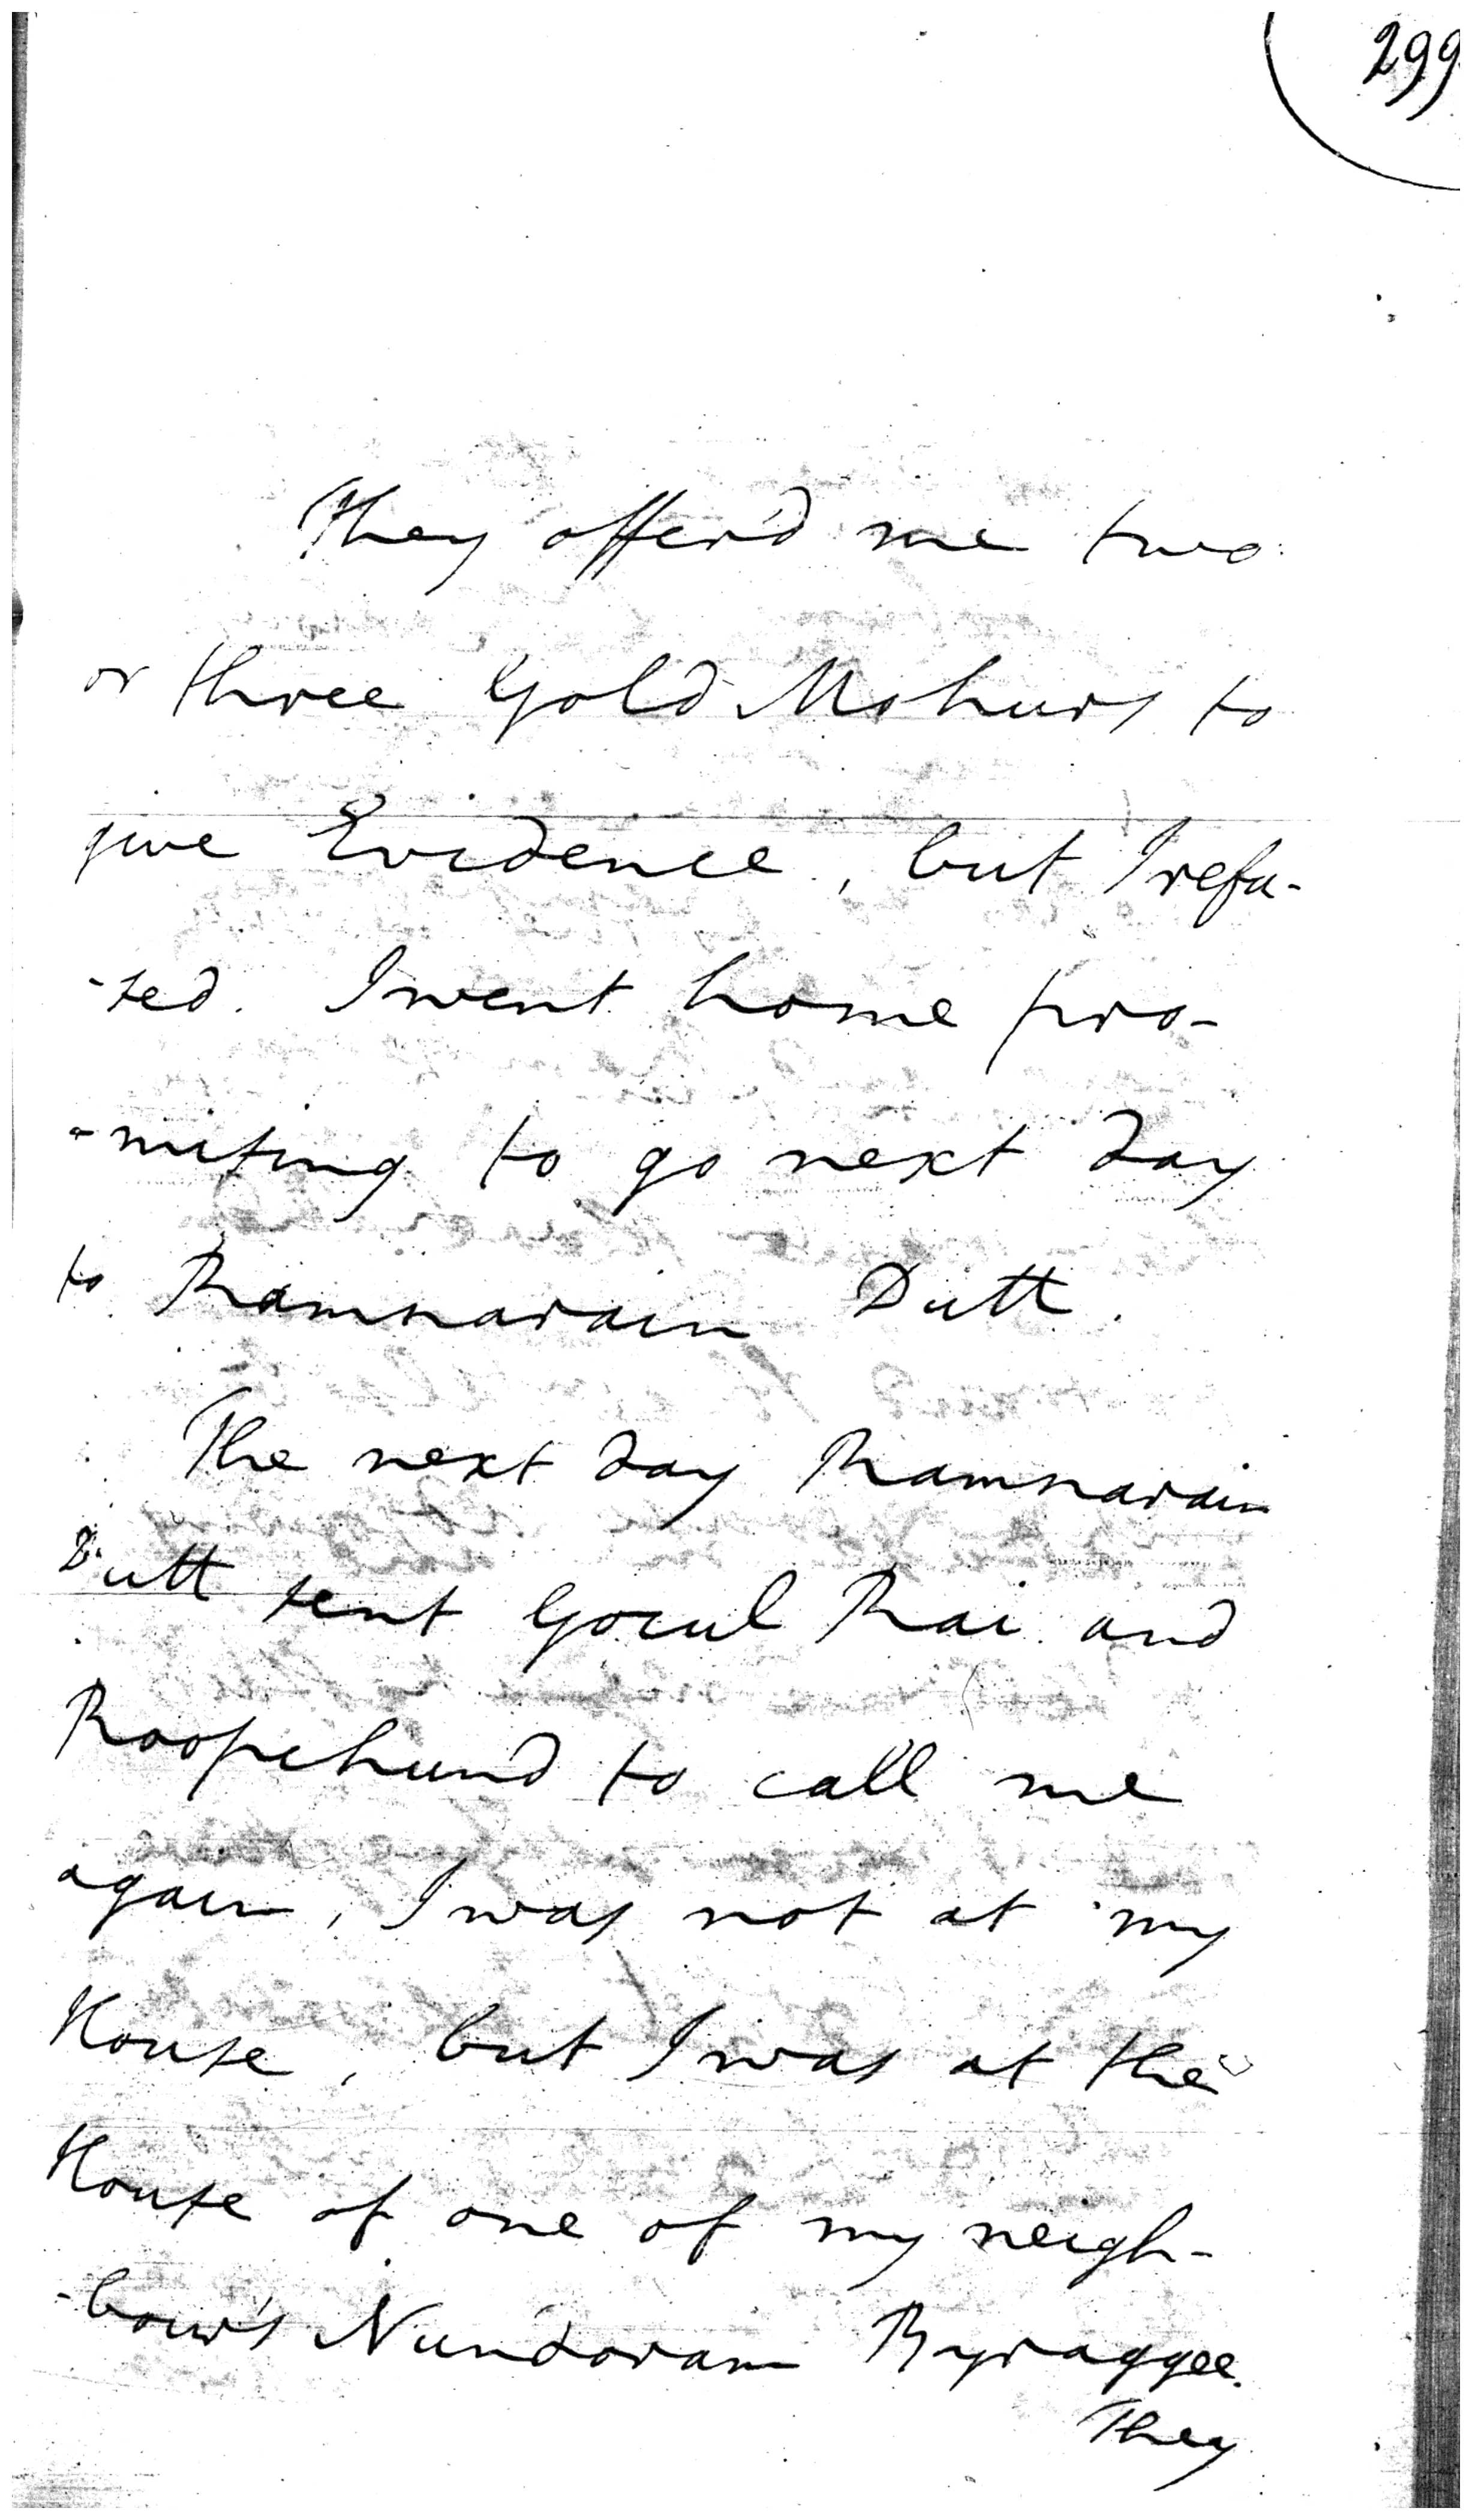 299
They offer'd me two
or three Gold Mohurs to
give Evidence, but I refu-
-sed. I went home pro-
-mising to go next day
to Ramnarain Dutt.
The next day Ramnarain
Dutt sent Gocul Rai and
Roopchund to call me
again, I was not at my
House, but I was at the
House of one of my neigh-
-bour's Nundoram Byraggee.
They